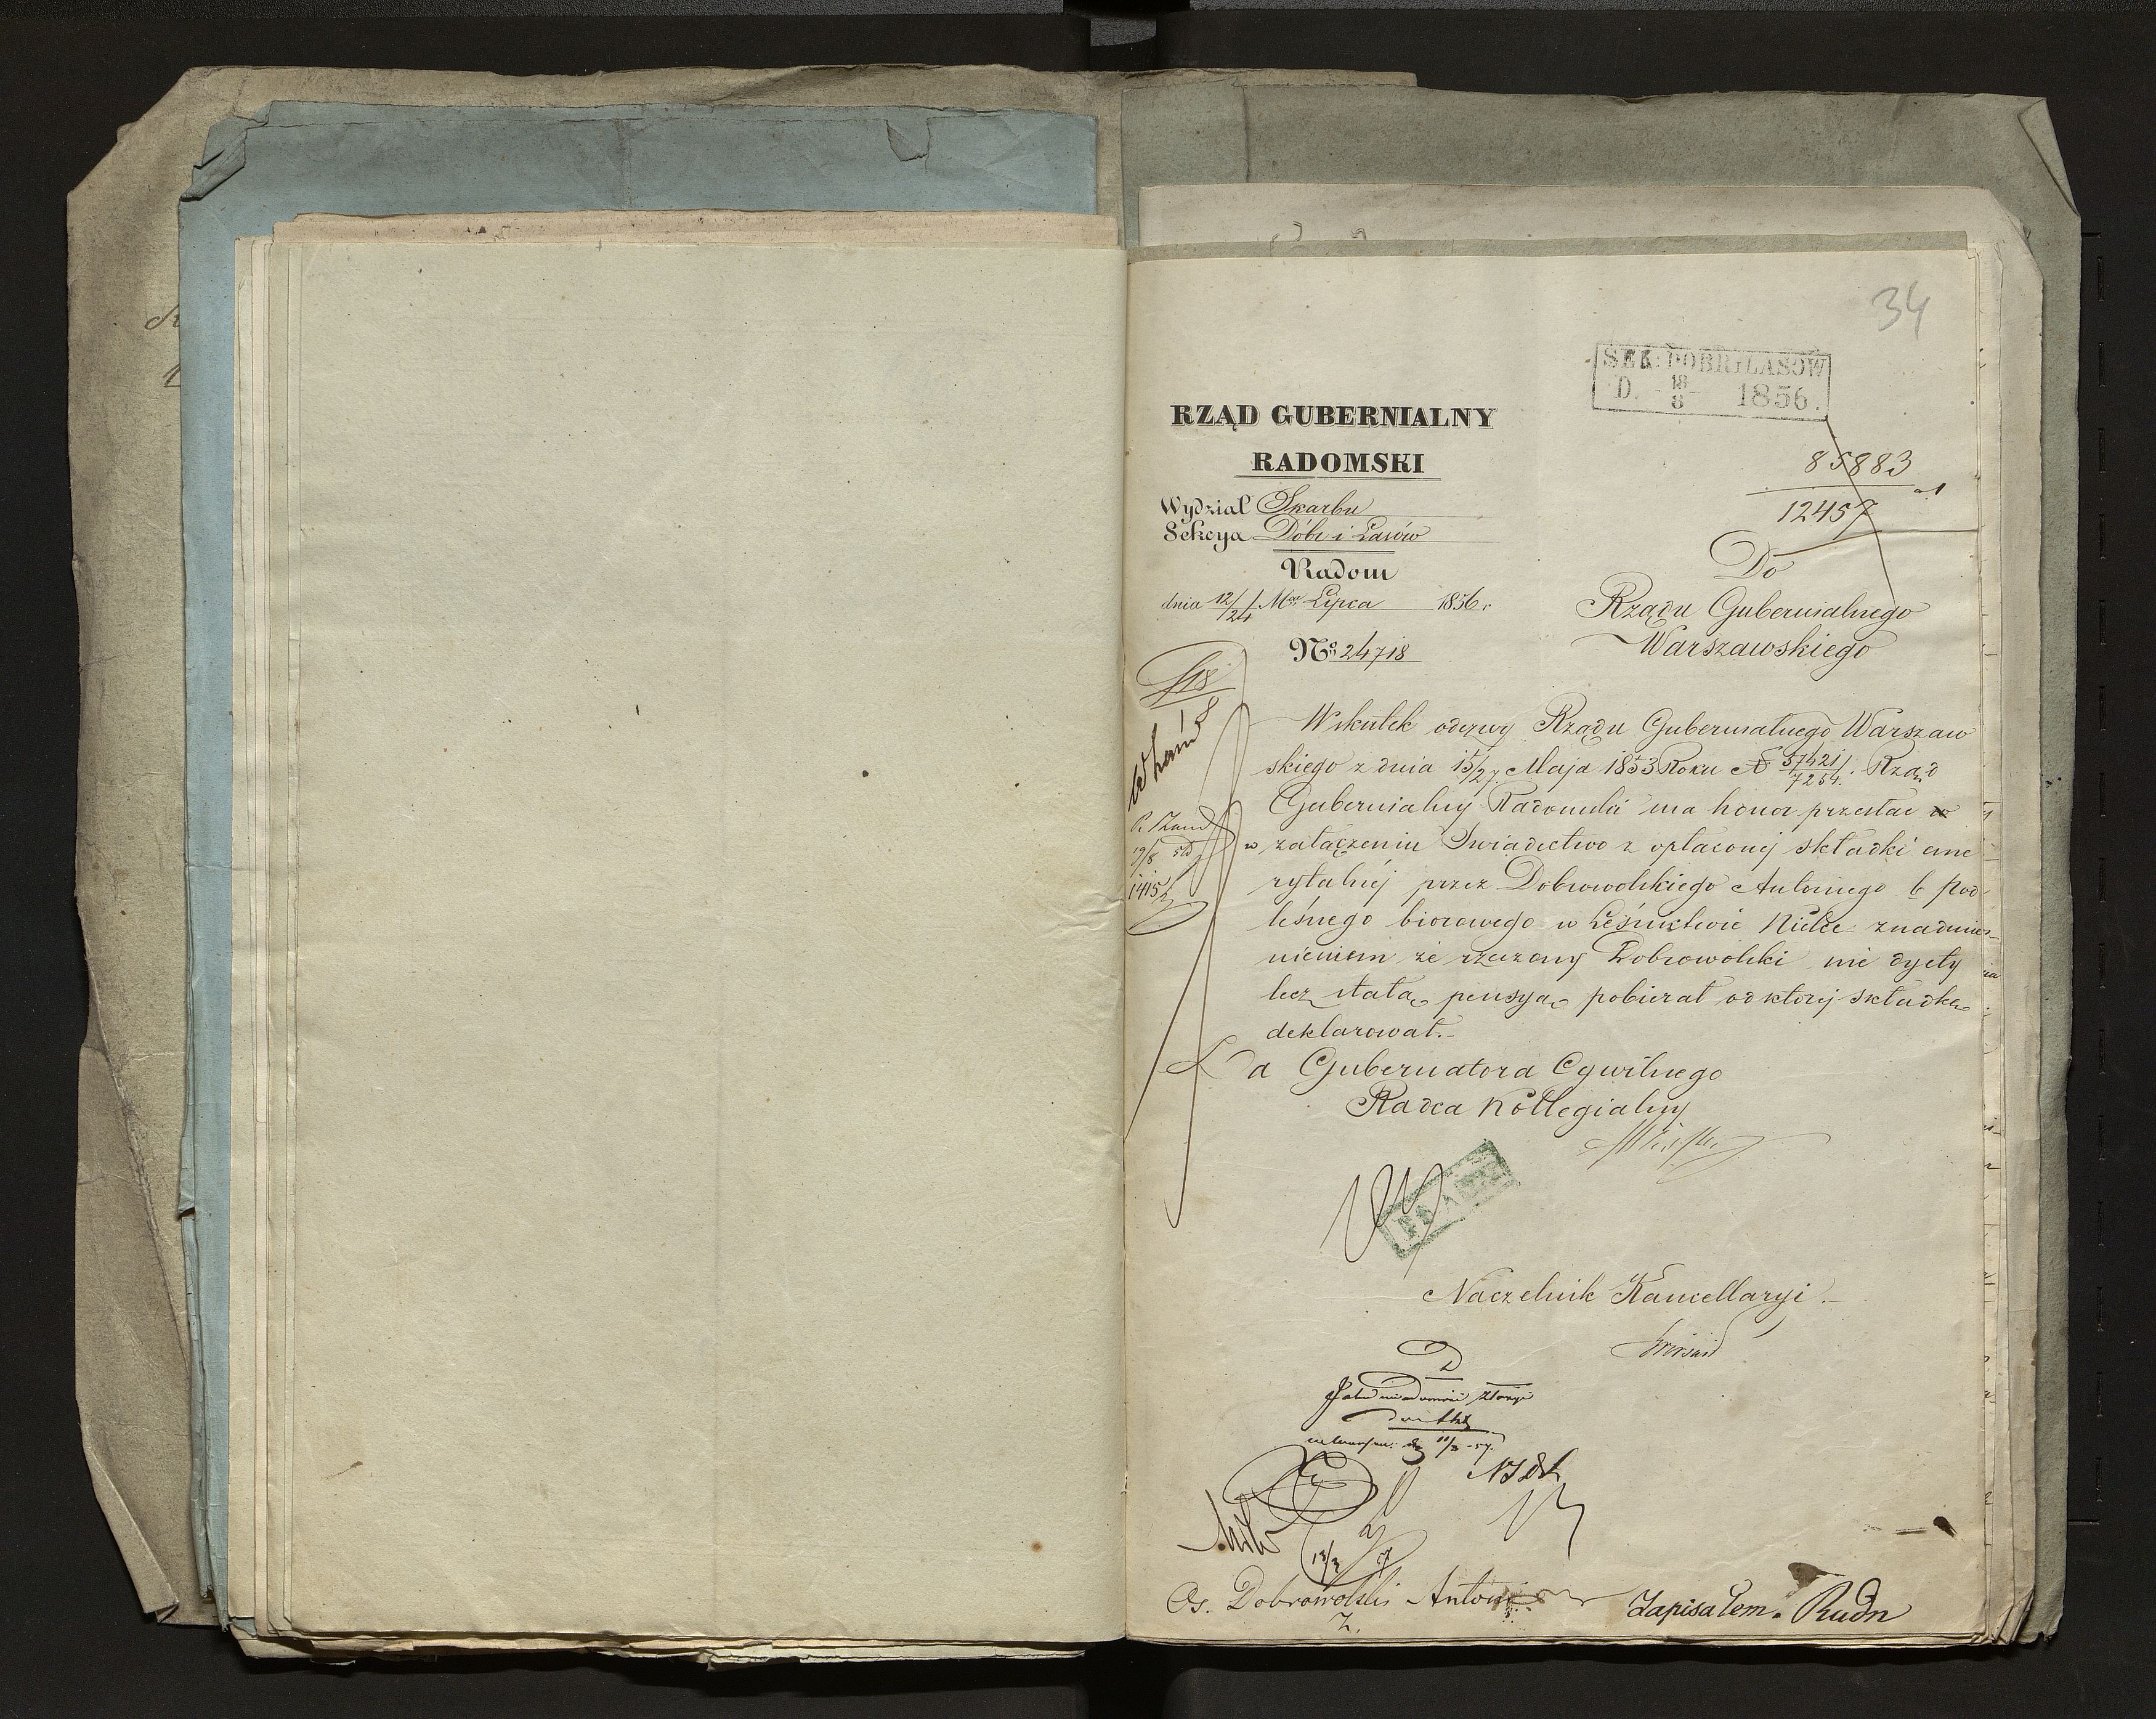 34
SEK: DOBR i LASÓW
D. 18/8 1856.
RZĄD GUBERNIALNY
RADOMSKI
85883
12457
Wydział Skarbu
Sekcya Dóbr i Lasów
Radom
dnia 12/24 Mca Lipca 1856 r.
No 24718
Do
Rządu Gubernialnego
Warszawskiego
Wskutek odezwy Rządu Gubernialnego Warszaw
skiego z dnia 15/27 Maja 1853 Roku N 37421/7254. Rząd
Gubernialny Radomski ma honor przesłać
w załączeniu Swiadectwo z opłaconej składki eme
rytalnej przez Dobrowolskiego Antoniego b Pod-
leśnego biorowego w Leśnictwie Kielce znadmie-
nieniem że rzeczony Dobrowolski nie dyety
lecz stałą pensyą pobierał od której składkę
deklarował.-
Za Gubernatora Cywilnego
Radca Kollegialny
Naczelnik Kancellaryi
11/3 -57.
13/3
Os. Dobrowolski Antoni
Zapisałem. Rudn